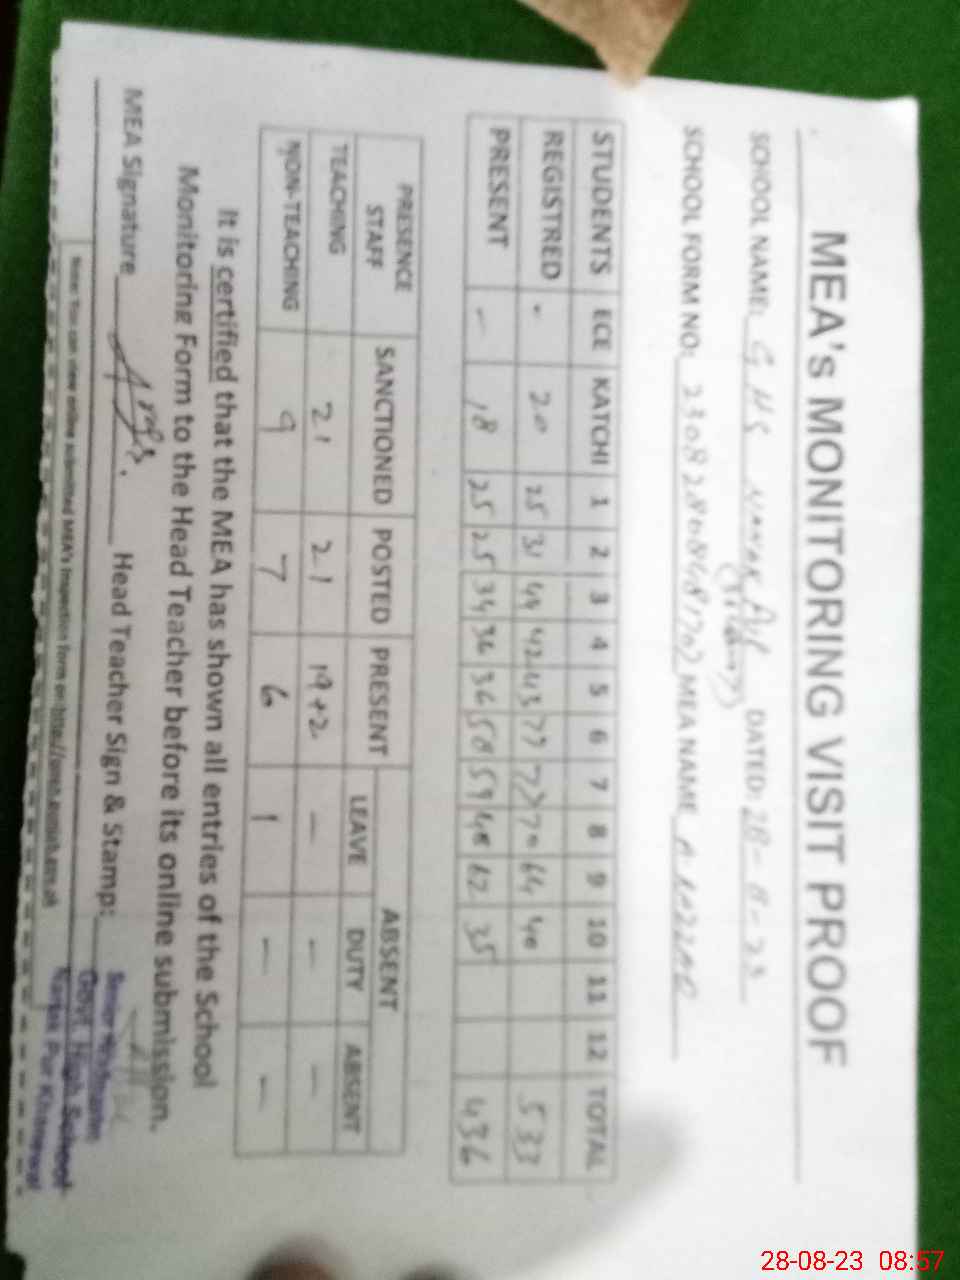 MEA's MONITORING VISIT PROOF
SCHOOL NAME: G H S NANAK PUR DATED: 28-8-23
SCHOOL FORM NO: MEA NAME
STUDENTS ECE KATCHI 1 2 3 4 5 6 7 8 9 10 11 12 TOTAL
REGISTRED - 20 25 31 44 42 43 77 77 70 64 40 533
PRESENT - 18 25 25 34 36 36 58 59 48 62 35 436
PRESENCE STAFF SANCTIONED POSTED PRESENT ABSENT
LEAVE DUTY ABSENT
TEACHING 21 21 19+2 - - -
NON-TEACHING 9 7 6 1 - -
It is certified that the MEA has shown all entries of the School
Monitoring Form to the Head Teacher before its online submission.
MEA Signature Head Teacher Sign & Stamp:
Senior Headmaster
Govt. High School
Nanak Pur Khanewal
Note: You can view online submitted MEA's inspection form on
28-08-23 08:57